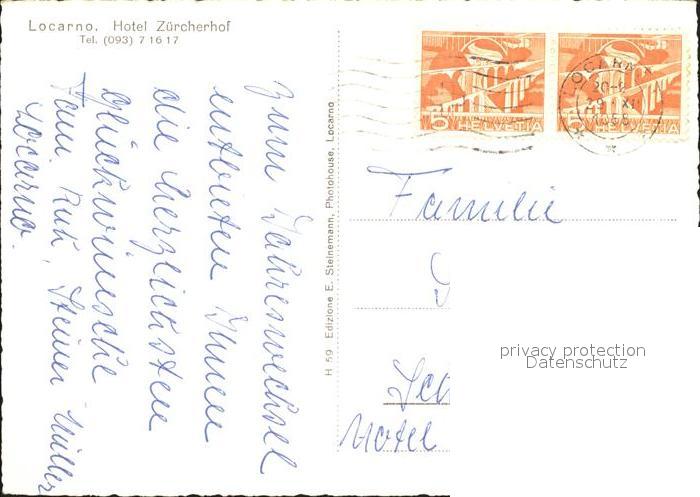 Locarno. Hotel Zürcherhof
Tel. (093) 7 16 17
Zum Jahreswechsel
entbieten Ihnen
die herzlichsten
Glückwünsche
Fam. Steiner Müller
Locarno.
H 59 Edizione E. Steinemann, Photohouse, Locarno
5 HELVETIA
5 HELVETIA
LOCARNO
Familie
Hotel
privacy protection
Datenschutz